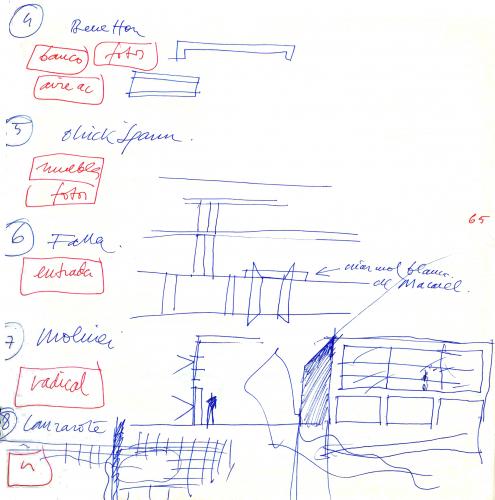 4 Benetton
banco fotos
aire ac
5 Chick Spann.
muebles
fotos
65
6 Falla.
entrada
marmol blanco
de Macael.
7 Molinei
radical
8 Lanzarote